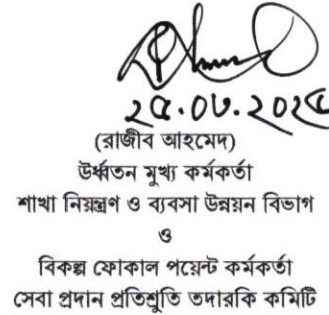 ২৫.০৩.২০২৫
(রাজীব আহমেদ)
উর্ধ্বতন মুখ্য কর্মকর্তা
শাখা নিয়ন্ত্রণ ও ব্যবসা উন্নয়ন বিভাগ
ও
বিকল্প ফোকাল পয়েন্ট কর্মকর্তা
সেবা প্রদান প্রতিশ্রুতি তদারকি কমিটি